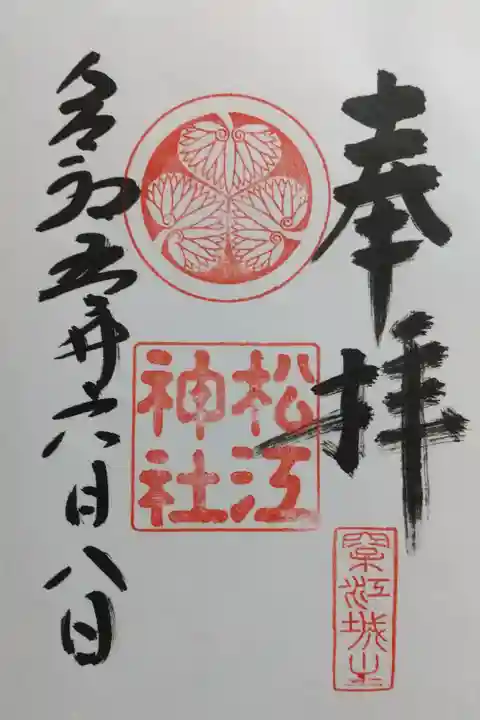 奉拝
松江
神社
江城
令和五年六月八日